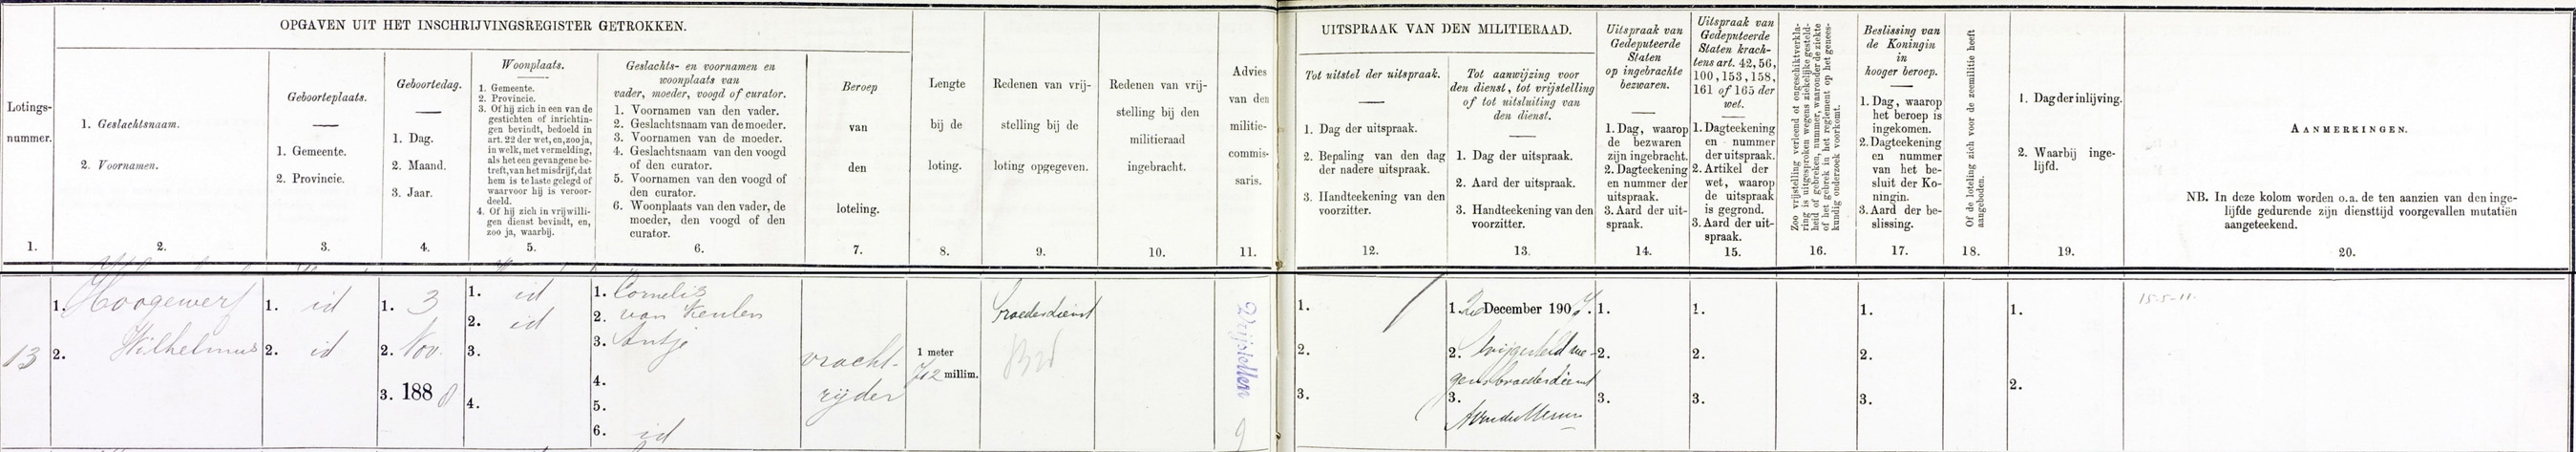 OPGAVEN UIT HET INSCHRIJVINGSREGISTER GETROKKEN.
Lotings-
nummer.
1.
1. Geslachtsnaam.
2. Voornamen.
2.
Geboorteplaats.
1. Gemeente.
2. Provincie.
3.
Geboortedag.
1. Dag.
2. Maand.
3. Jaar.
4.
Woonplaats.
1. Gemeente.
2. Provincie.
3. Of hij zich in een van de
gestichten of inrichtin-
gen bevindt, bedoeld in
art. 22 der wet, en, zoo ja,
in welk, met vermelding,
als het een gevangene be-
treft, van het misdrijf, dat
hem is te laste gelegd of
waarvoor hij is veroor-
deeld.
4. Of hij zich in vrijwilli-
gen dienst bevindt, en,
zoo ja, waarbij.
5.
Geslachts- en voornamen en
woonplaats van
vader, moeder, voogd of curator.
1. Voornamen van den vader.
2. Geslachtsnaam van de moeder.
3. Voornamen van de moeder.
4. Geslachtsnaam van den voogd
of den curator.
5. Voornamen van den voogd of
den curator.
6. Woonplaats van den vader, de
moeder, den voogd of den
curator.
6.
Beroep
van
den
loteling.
7.
Lengte
bij de
loting.
8.
Redenen van vrij-
stelling bij de
loting opgegeven.
9.
Redenen van vrij-
stelling bij den
militieraad
ingebracht.
10.
Advies
van den
militie-
commis-
saris.
11.
UITSPRAAK VAN DEN MILITIERAAD.
Tot uitstel der uitspraak.
1. Dag der uitspraak.
2. Bepaling van den dag
der nadere uitspraak.
3. Handteekening van den
voorzitter.
12.
Tot aanwijzing voor
den dienst, tot vrijstelling
of tot uitsluiting van
den dienst.
1. Dag der uitspraak.
2. Aard der uitspraak.
3. Handteekening van den
voorzitter.
13.
Uitspraak van
Gedeputeerde
Staten
op ingebrachte
bezwaren.
1. Dag, waarop
de bezwaren
zijn ingebracht.
2. Dagteekening
en nummer der
uitspraak.
3. Aard der uit-
spraak.
14.
Uitspraak van
Gedeputeerde
Staten krach-
tens art. 42, 56,
100, 153, 158,
161 of 165 der
wet.
1. Dagteekening
en nummer
der uitspraak.
2. Artikel der
wet, waarop
de uitspraak
is gegrond.
3. Aard der uit-
spraak.
15.
Zoo vrijstelling verleend of ongeschiktverkla-
ring is uitgesproken wegens ziekelijke gesteld-
heid of gebreken, nummer, waaronder de ziekte
of het gebrek in het reglement op het genees-
kundig onderzoek voorkomt.
16.
Beslissing van
de Koningin
in
hooger beroep.
1. Dag, waarop
het beroep is
ingekomen.
2. Dagteekening
en nummer
van het be-
sluit der Ko-
ningin.
3. Aard der be-
slissing.
17.
Of de loteling zich voor de zeemilitie heeft
aangeboden.
18.
1. Dag der inlijving.
2. Waarbij inge-
lijfd.
19.
AANMERKINGEN.
NB. In deze kolom worden o.a. de ten aanzien van den inge-
lijfde gedurende zijn diensttijd voorgevallen mutatiën
aangeteekend.
20.
13
1. Hoogewerf
2. Wilhelmus
1. id
2. id
1. 3
2. Nov.
3. 1888
1. id
2. id
3.
4.
1. Cornelis
2. van Keulen
3. Antje
4.
5.
6. id
vracht-
rijder
1 meter
712 millim.
broederdienst
Vrijstellen
1.
2.
3.
1. December 190
2. Vrijgesteld we-
gens broederdienst
3.
1.
2.
3.
1.
2.
3.
1.
2.
3.
1.
2.
15-5-11.